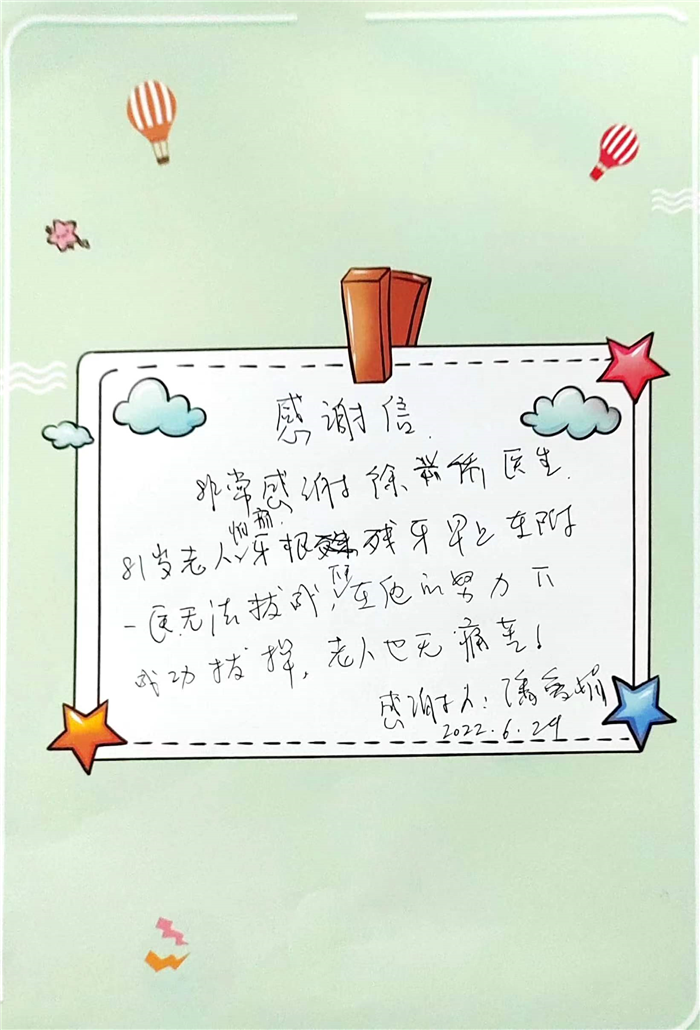 感谢信.
非常感谢徐 医生.
怕痛.
81岁老人,牙根 残牙早上在附
一医无法拔成,在他的努力下
成功拔掉,老人也无痛苦!
感谢人:潘
2022.6.29